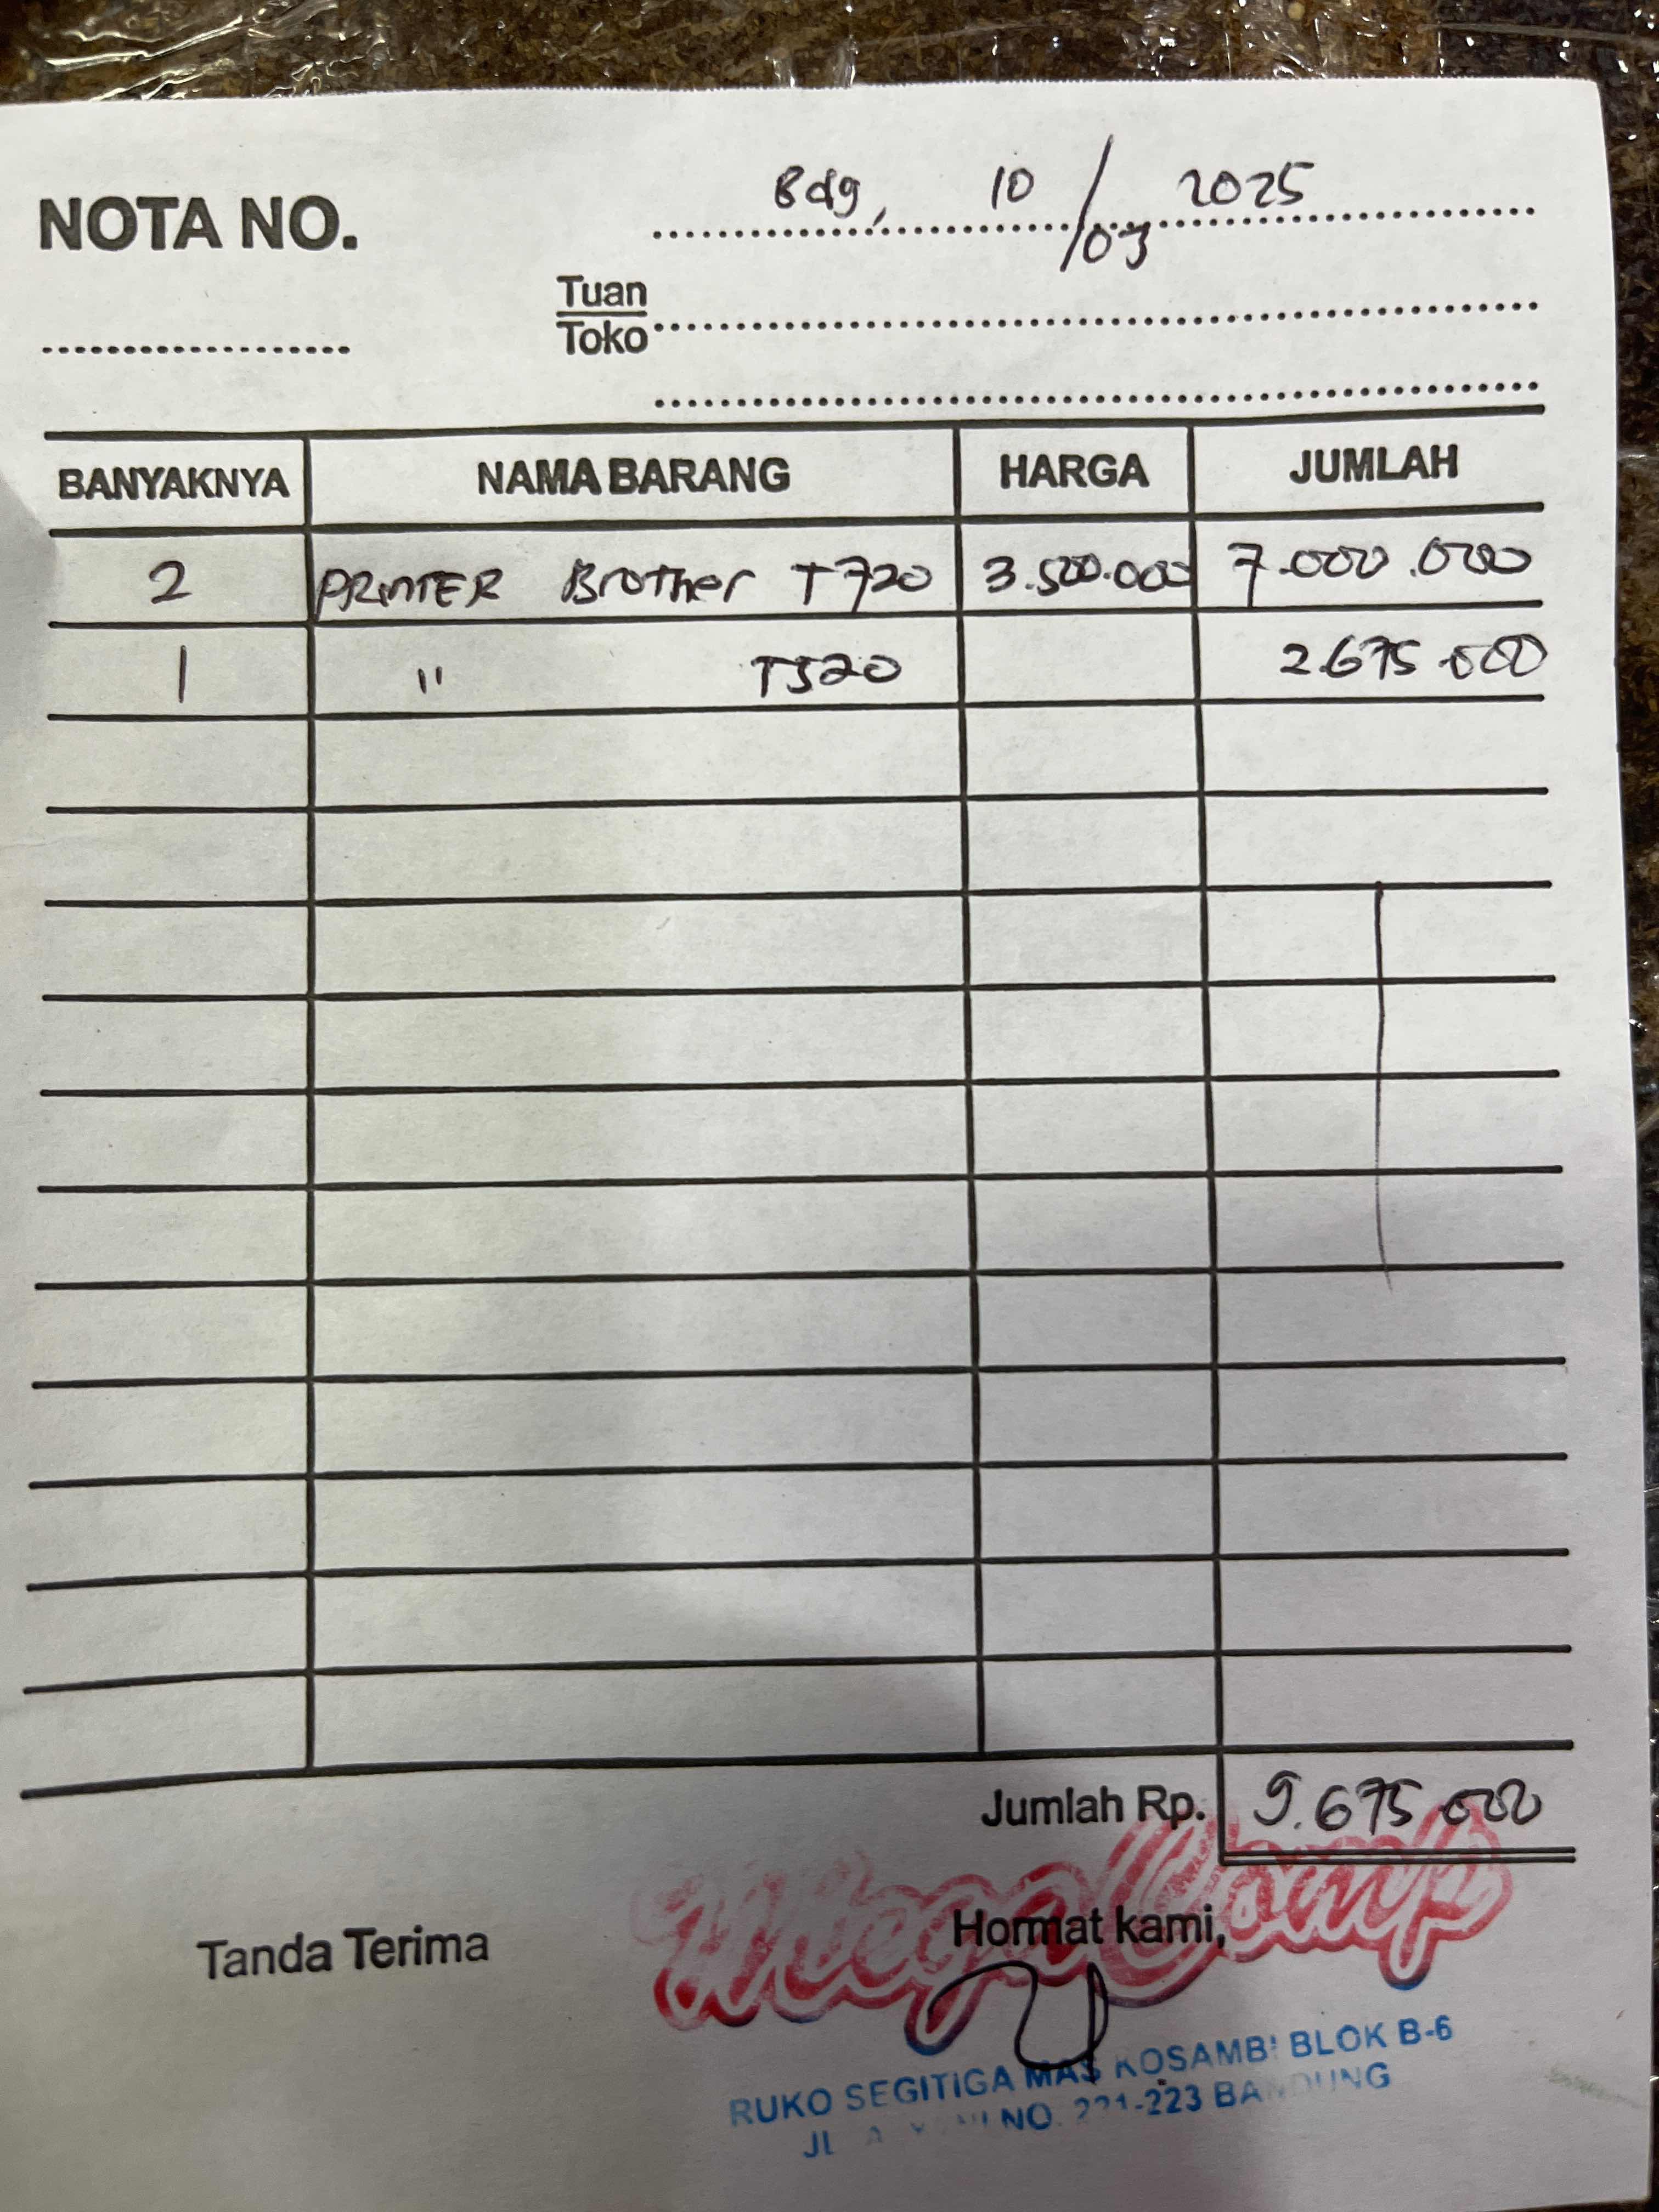 NOTA NO.
Bdg, 10/03 2025
Tuan
Toko
BANYAKNYA NAMA BARANG HARGA JUMLAH
2 PRINTER Brother T720 3.500.000 7.000.000
1 " T520 2.675.000
Jumlah Rp. 9.675.000
Tanda Terima Hormat kami,
MegaComp
RUKO SEGITIGA MAS KOSAMBI BLOK B-6
NO. 221-223 BANDUNG